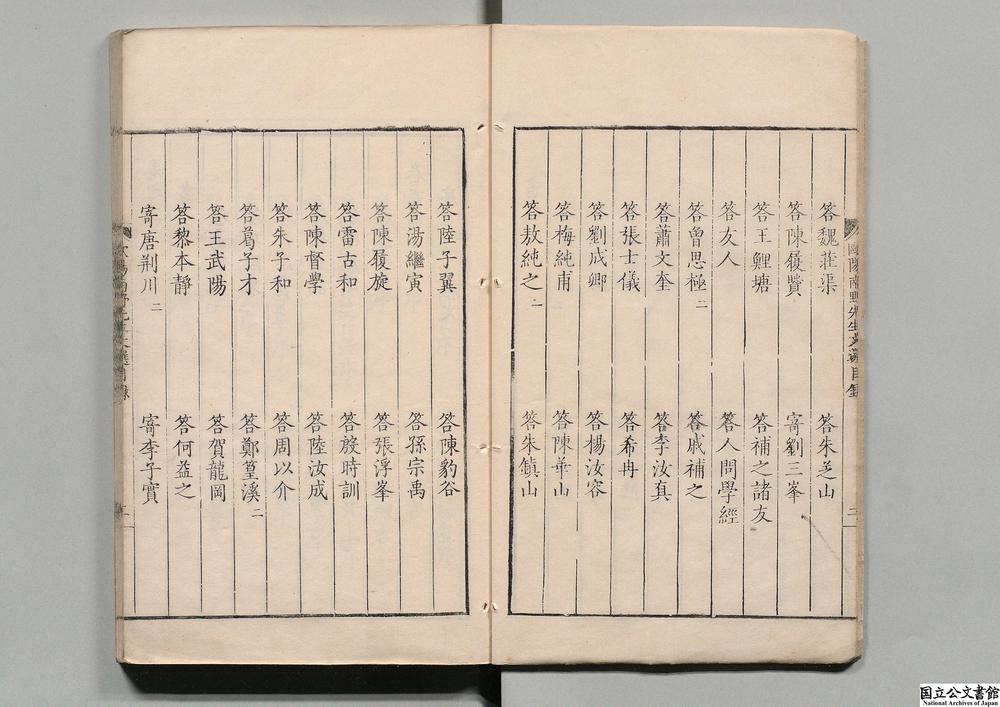 答魏莊渠　答朱芝山
答陳履賢　寄劉三峯
答王鯉塘　答補之諸友
答友人　答人問學經
答曾思極二　答戚補之
答蕭文奎　答李汝真
答張士儀　答希冉
答劉成卿　答楊汝容
答梅純甫　答陳華山
答敖純之二　答朱鎮山
答陸子翼　答陳豹谷
答湯繼寅　答孫宗禹
答陳履旋　答張浮峯
答雷古和　答殷時訓
答陳督學　答陸汝成
答朱子和　答周以介
答葛子才　答鄭篁溪二
答王武陽　答賀龍岡
答黎本靜　答何益之
寄唐荆川二　寄李子實
歐陽南野先生文選目錄
二
国立公文書館
National Archives of Japan